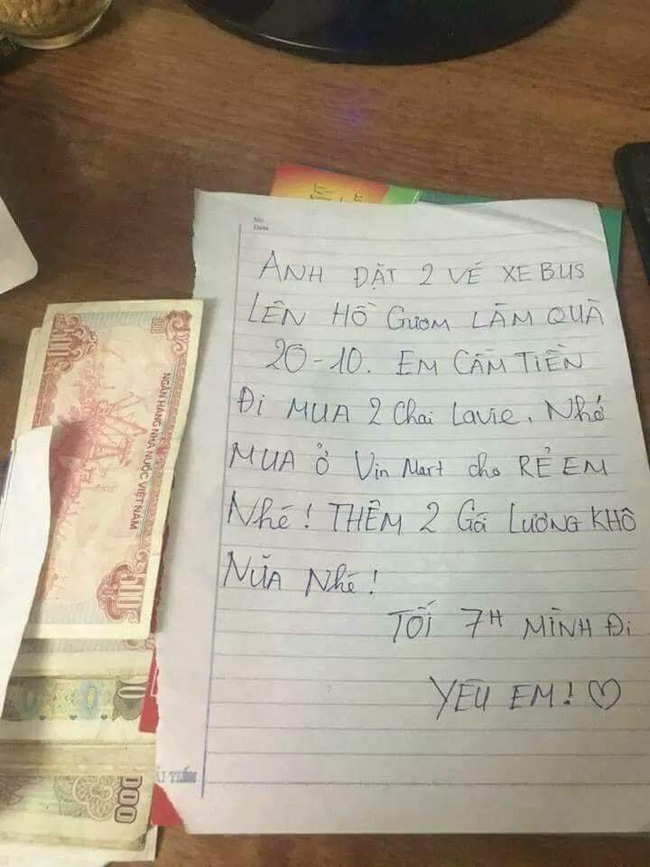 No:
Date:
ANH ĐẶT 2 VÉ XE BUS
LÊN HỒ GƯƠM LÀM QUÀ
20-10. EM CẦM TIỀN
ĐI MUA 2 Chai Lavie. Nhớ
MUA Ở Vin Mart cho RẺ EM
Nhé! THÊM 2 Gá LƯƠNG KHÔ
NỮA Nhé!
TỐI 7H MÌNH ĐI
YÊU EM! ♡
NGÂN HÀNG NHÀ NƯỚC VIỆT NAM
10
000